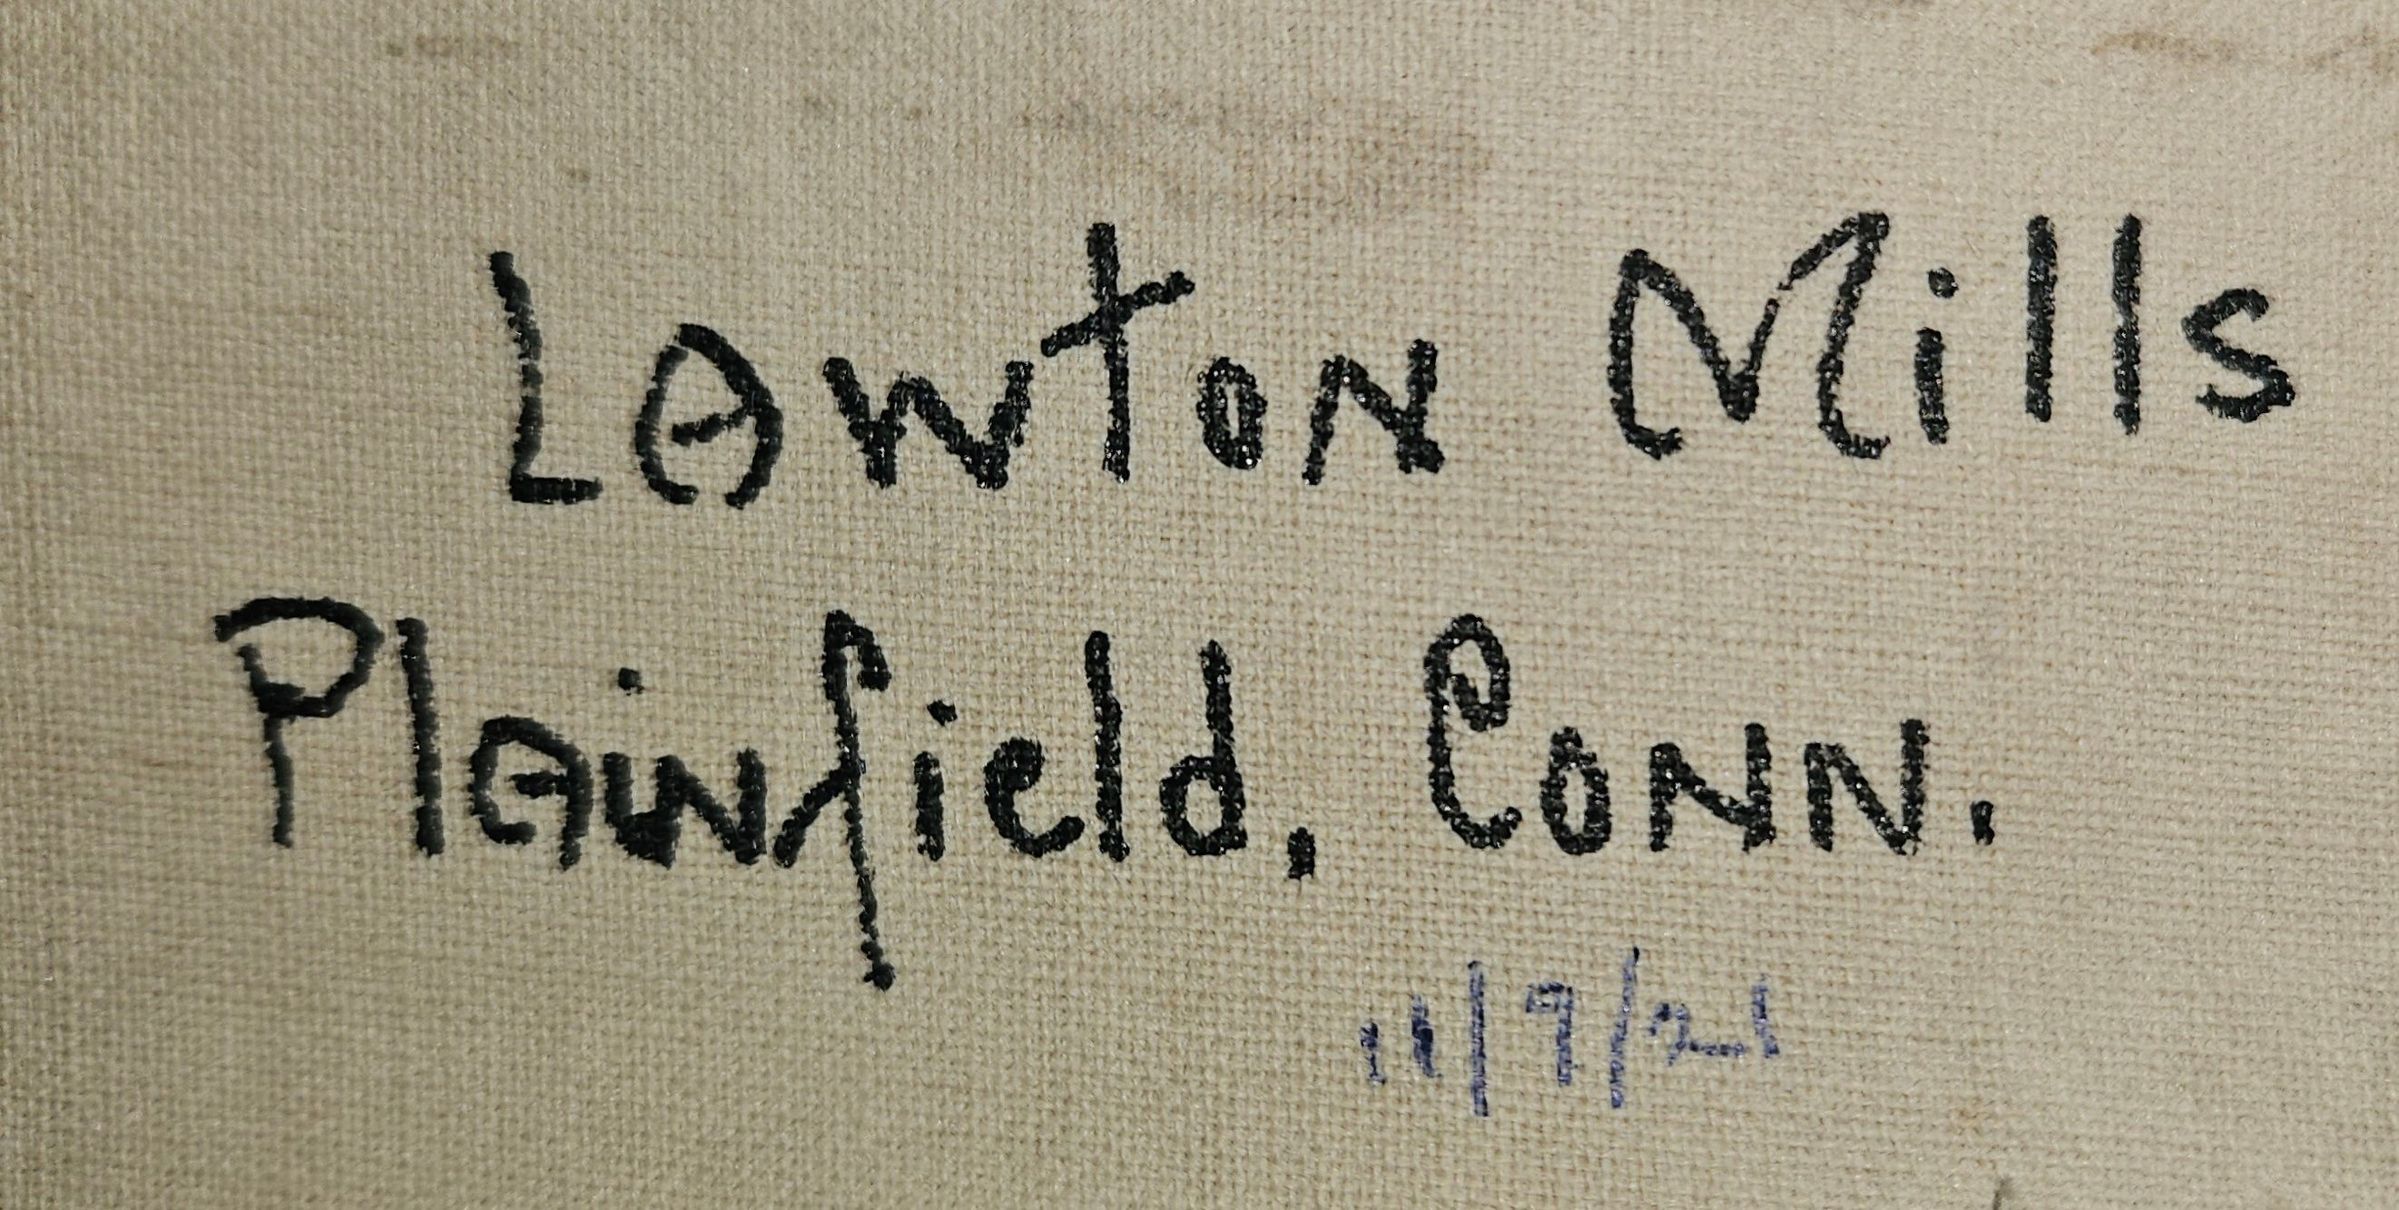 Lawton Mills
Plainfield, Conn.
11/9/21